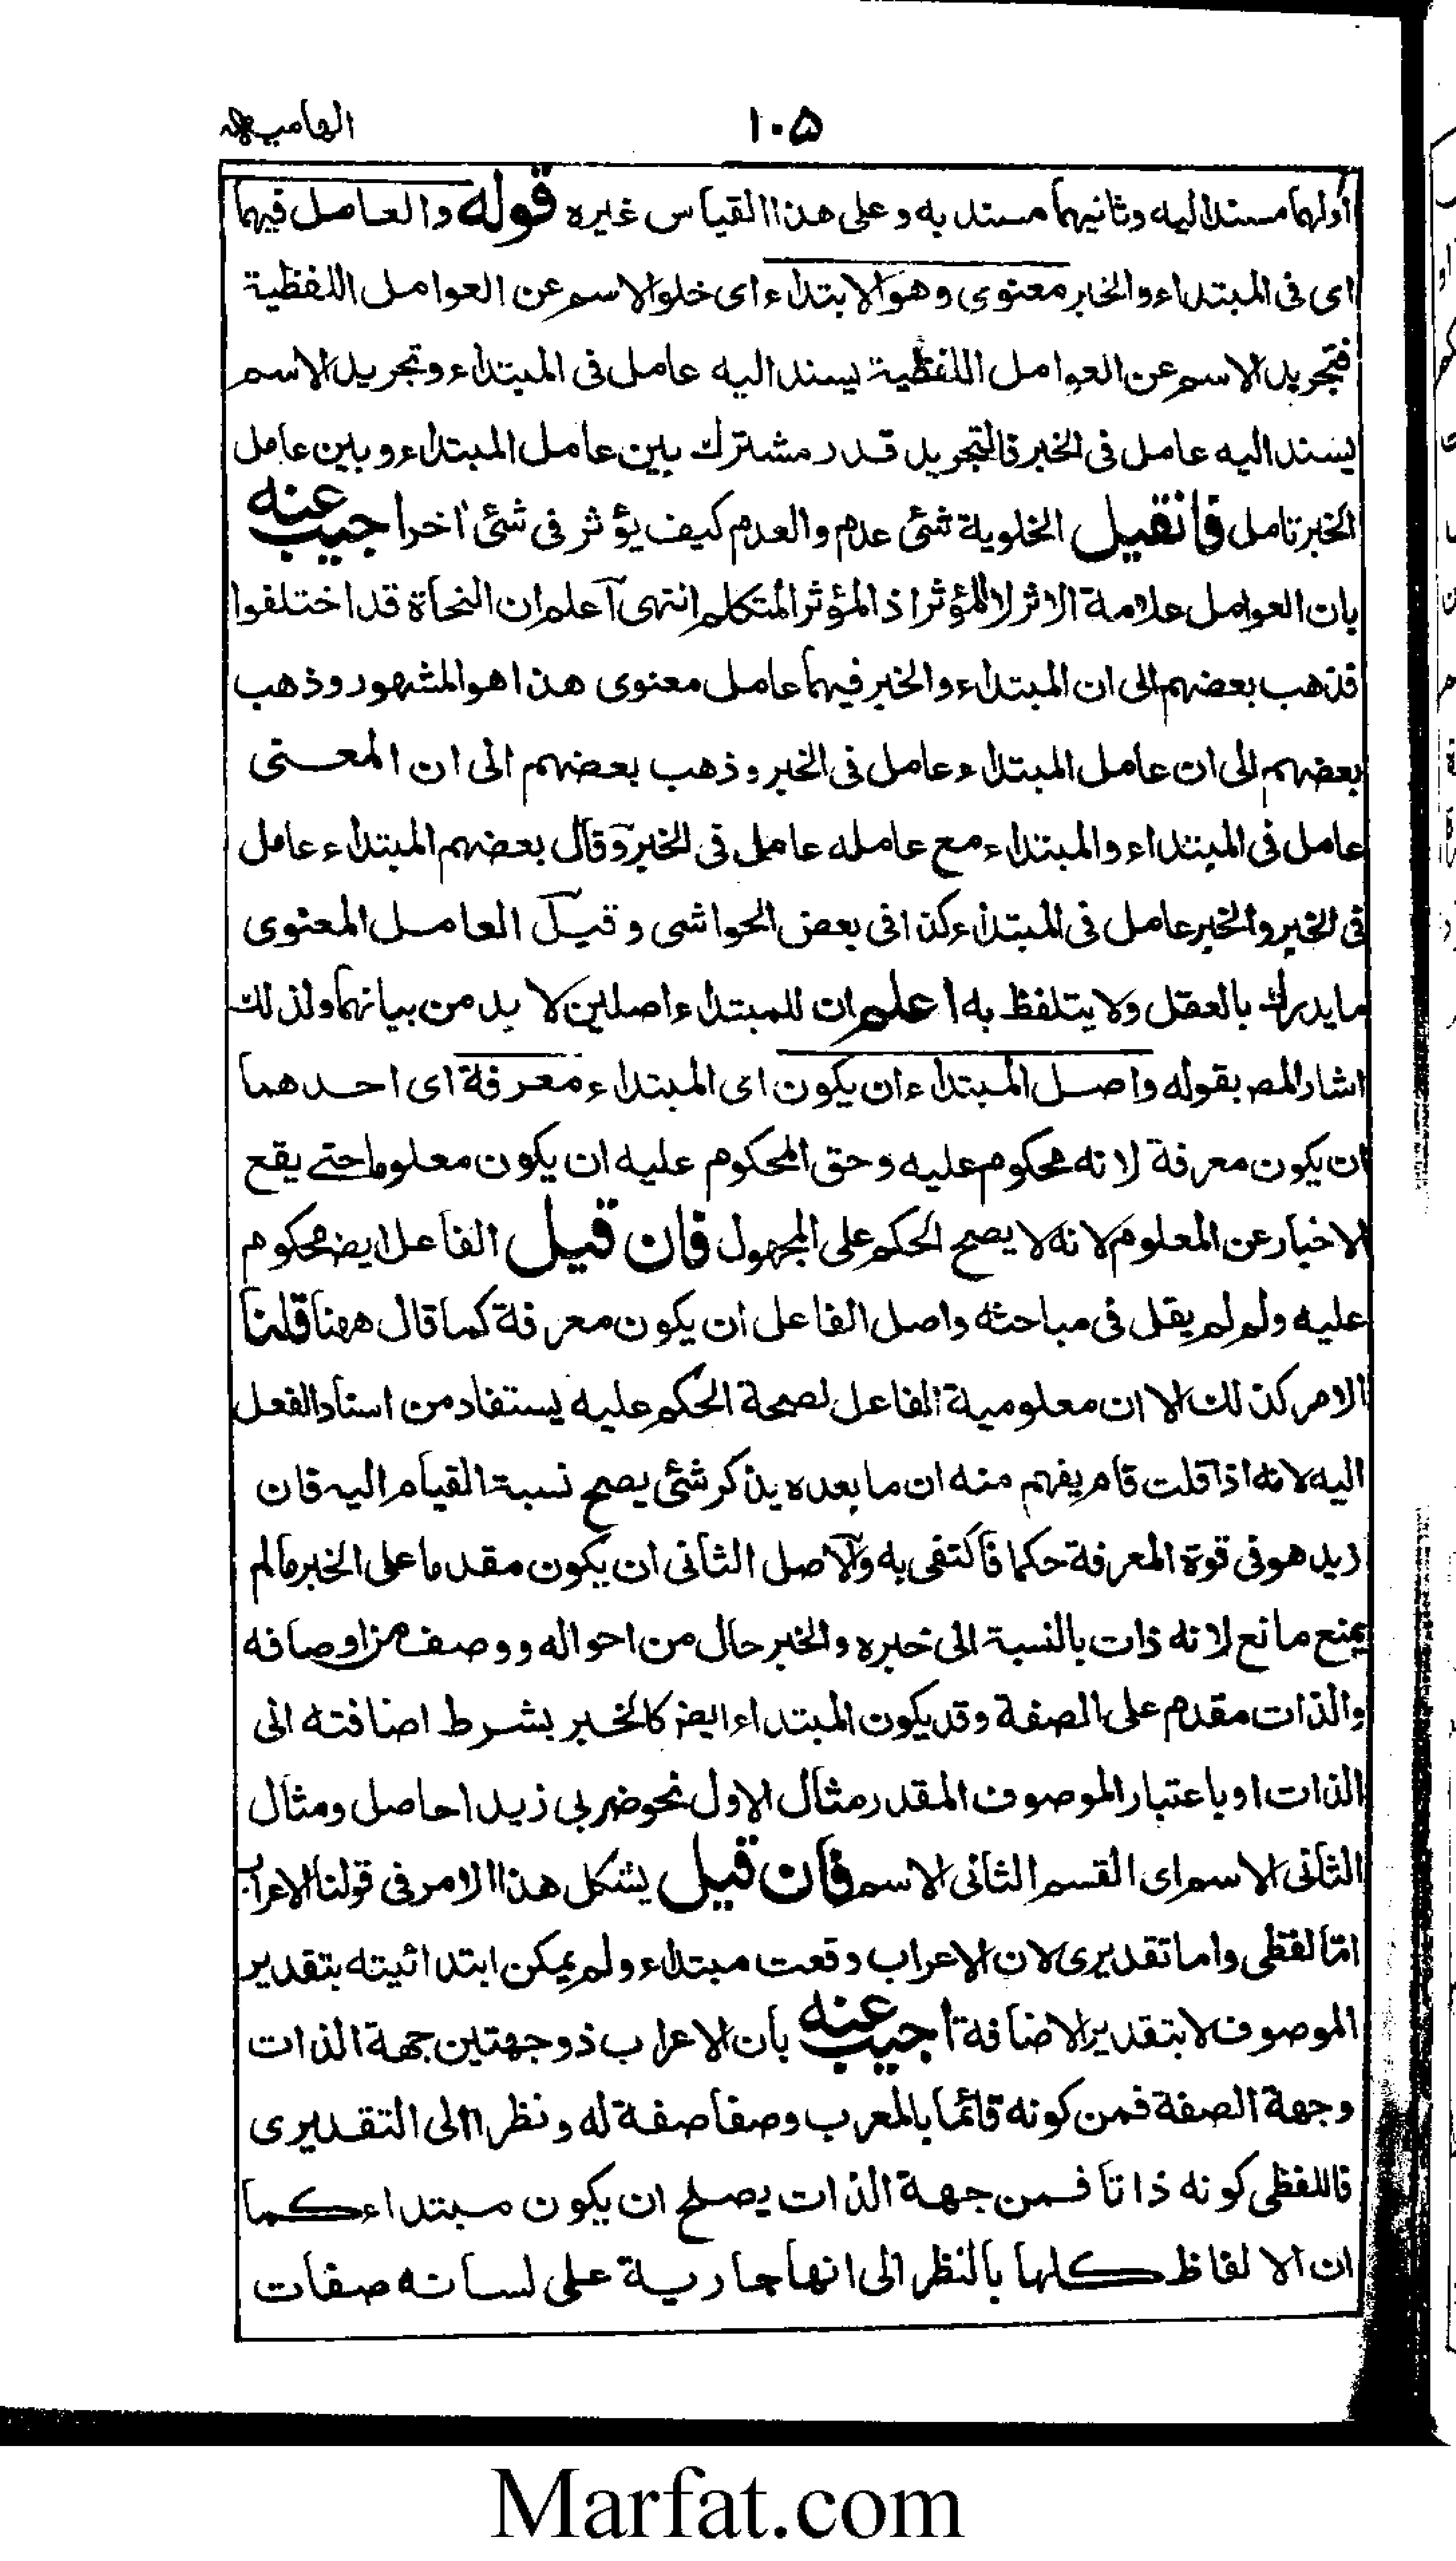 ١٠۵
الهاميه
اولهما مسندا اليه وثانيهما مسند به وعلى هذا القياس غيره قوله والعامل فيهما
اى فى المبتداء والخبر معنوى وهو الابتداء اى خلو الاسم عن العوامل اللفظية
فتجريد الاسم عن العوامل اللفظية يسند اليه عامل فى المبتداء وتجريد الاسم
يسند اليه عامل فى الخبر فالتجريد قدر مشترك بين عامل المبتداء وبين عامل
الخبر تامل فانقيل الخلوية شئ عدم والعدم كيف يؤثر فى شئ اخر اجيب عنه
بان العوامل علامة الاثر لا للمؤثر اذ المؤثر المتكلم انتهى اعلم ان النحاة قد اختلفوا
فذهب بعضهم الى ان المبتداء والخبر فيهما عامل معنوى هذا هو المشهور وذهب
بعضهم الى ان عامل المبتداء عامل فى الخبر وذهب بعضهم الى ان المعنى
عامل فى المبتداء والمبتداء مع عامله عامل فى الخبر وقال بعضهم المبتداء عامل
فى الخبر والخبر عامل فى المبتداء كذا فى بعض الحواشى وقيل العامل المعنوى
ما يدرك بالعقل ولا يتلفظ به اعلم ان للمبتداء اصلين لا بد من بيانهما ولذلك
اشار المص بقوله واصل المبتداء ان يكون اى المبتداء معرفة اى احدهما
ان يكون معرفة لانه محكوم عليه وحق المحكوم عليه ان يكون معلوما حتى يقع
الاخبار عن المعلوم لانه لا يصح الحكم على المجهول فان قيل الفاعل ايض محكوم
عليه ولم لم يقل فى مباحثه واصل الفاعل ان يكون معرفة كما قال ههنا قلنا
الامر كذلك الا ان معلومية الفاعل لصحة الحكم عليه يستفاد من اسناد الفعل
اليه لانه اذا قلت قام يفهم منه ان ما بعده يذكر شئ يصح نسبة القيام اليه فان
زيد هو فى قوة المعرفة حكما فاكتفى به والاصل الثانى ان يكون مقدما على الخبر مالم
يمنع مانع لانه ذات بالنسبة الى خبره والخبر حال من احواله ووصف من اوصافه
والذات مقدم على الصفة وقد يكون المبتداء ايض كالخبر بشرط اضافته الى
الذات او باعتبار الموصوف المقدر مثال الاول نحو ضربى زيدا حاصل ومثال
الثانى الاسم اى القسم الثانى الاسم فان قيل يشكل هذا الامر فى قولنا الاعراب
اما لفظى واما تقديرى لان الاعراب وقعت مبتداء ولم يمكن ابتدائيته بتقدير
الموصوف لا بتقدير الاضافة اجيب عنه بأن الاعراب ذو جهتين جهة الذات
وجهة الصفة فمن كونه قائما بالمعرب وصفا صفة له ونظرا الى التقديرى
فاللفظى كونه ذاتا فمن جهة الذات يصلح ان يكون مبتداء كما
ان الالفاظ كلها بالنظر الى انها جارية على لسانه صفات
Marfat.com